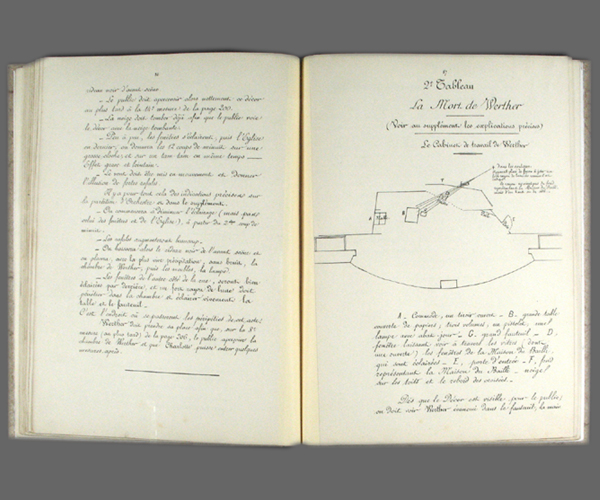 rideau noir d'avant scène
_ Le public doit apercevoir alors nettement ce décor
au plus tard à la 14e mesure de la page 230.
_ La neige doit tomber déjà afin que le public voie
le décor avec la neige tombante.
_ Peu à peu, les fenêtres s'éclairent, puis l'Eglise
en dernier; on donnera les 12 coups de minuit sur une
grosse cloche et sur un tam tam en même temps
Effet grave et lointain.
_ Le vent doit être mis en mouvement et donner
l'illusion de fortes rafales.
Il y a pour tout cela des indications précises sur
la partition d'Orchestre et dans le supplément.
_ On commencera à diminuer l'éclairage (mais pas
celui des fenêtres et de l'Eglise), à partir du 2me coup de
minuit.
_ Les rafales augmenteront beaucoup.
_ On baissera alors le rideau noir de l'avant scène et
on placera, avec la plus vive précipitation, sans bruit, la
chambre de Werther; puis les meubles, la lampe.
_ Les fenêtres de l'autre côté de la rue, seront bien
éclairées par derrière, et un fort rayon de lune doit
pénétrer dans la chambre et éclairer vivement la
table et le fauteuil.
C'est l'endroit où se passeront les péripéties de cet acte;
Werther doit prendre sa place afin que, sur la 8e
mesure (au plus tard) de la page 240, le public aperçoive la
chambre de Werther et que Charlotte puisse entrer quelques
mesures après.
2e Tableau
La Mort de Werther
(Voir au supplément les explications précises)
Le Cabinet de travail de Werther
A _ Commode, un tiroir ouvert _ B _ grande table
couverte de papiers; trois volumes; un pistolet, une
lampe avec abat-jour _ C _ grand fauteuil _ D _
fenêtre laissant voir à travers les vitres (dont
une ouverte) les fenêtres de la Maison du Bailli
qui sont éclairées _ E _ porte d'entrée _ F _ fond
représentant la Maison du Bailli _ neige
sur les toits et le rebord des auvents _
Dès que le Décor est visible pour le public,
on doit voir Werther évanoui dans le fauteuil, la main